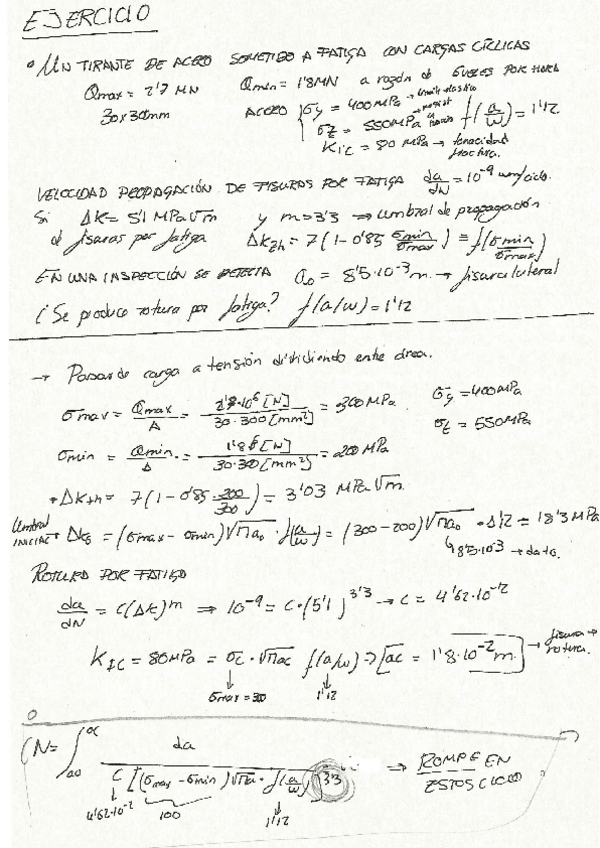 EJERCICIO
• UN TIRANTE DE ACERO SOMETIDO A FATIGA CON CARGAS CÍCLICAS
Qmax = 2'7 MN Qmin = 1'8MN a razón de 6 veces por hora
30x300mm ACERO σy = 400MPa → límite elástico f(a/w) = 1'12
σt = 550MPa
KIC = 80 MPa → tenacidad fractura.
VELOCIDAD PROPAGACIÓN DE FISURAS POR FATIGA da/dN = 10^-9 um/ciclo.
Si ΔK = 5'1 MPa√m y m = 3'3 → umbral de propagación
de fisuras por fatiga ΔKth = 7(1-0'85 σmin/σmax) = f(σmin/σmax)
EN UNA INSPECCIÓN SE DETECTA a0 = 8'5·10^-3 m. → fisura lateral
¿Se produce rotura por fatiga? f(a/w) = 1'12
→ Pasar de carga a tensión dividiendo entre área.
σmax = Qmax/A = 2'7·10^6 [N]/30·300 [mm²] = 300MPa. σy = 400MPa
σmin = Qmin/A = 1'8·6 [N]/30·300 [mm²] = 200 MPa σt = 550MPa
• ΔKth = 7(1-0'85·200/300) = 3'03 MPa√m.
Umbral INICIAL → ΔK0 = (σmax - σmin)√πa0 · f(a/w) = (300-200)√πa0 · 1'12 = 18'3 MPa
8'5·10^-3 → dato.
ROTURA POR FATIGA
da/dN = C(ΔK)^m ⇒ 10^-9 = C·(5'1)^3'3 → C = 4'62·10^-12
KIC = 80MPa = σc·√πac f(a/w) ⇒ ac = 1'8·10^-2 m. → fisura → rotura.
σmax = 300 1'12
N = ∫a0^ac da / C[(σmax - σmin)√πa · f(a/w)]^3'3 → ROMPE EN
ESTOS CICLOS
4'62·10^-2 100 1'12